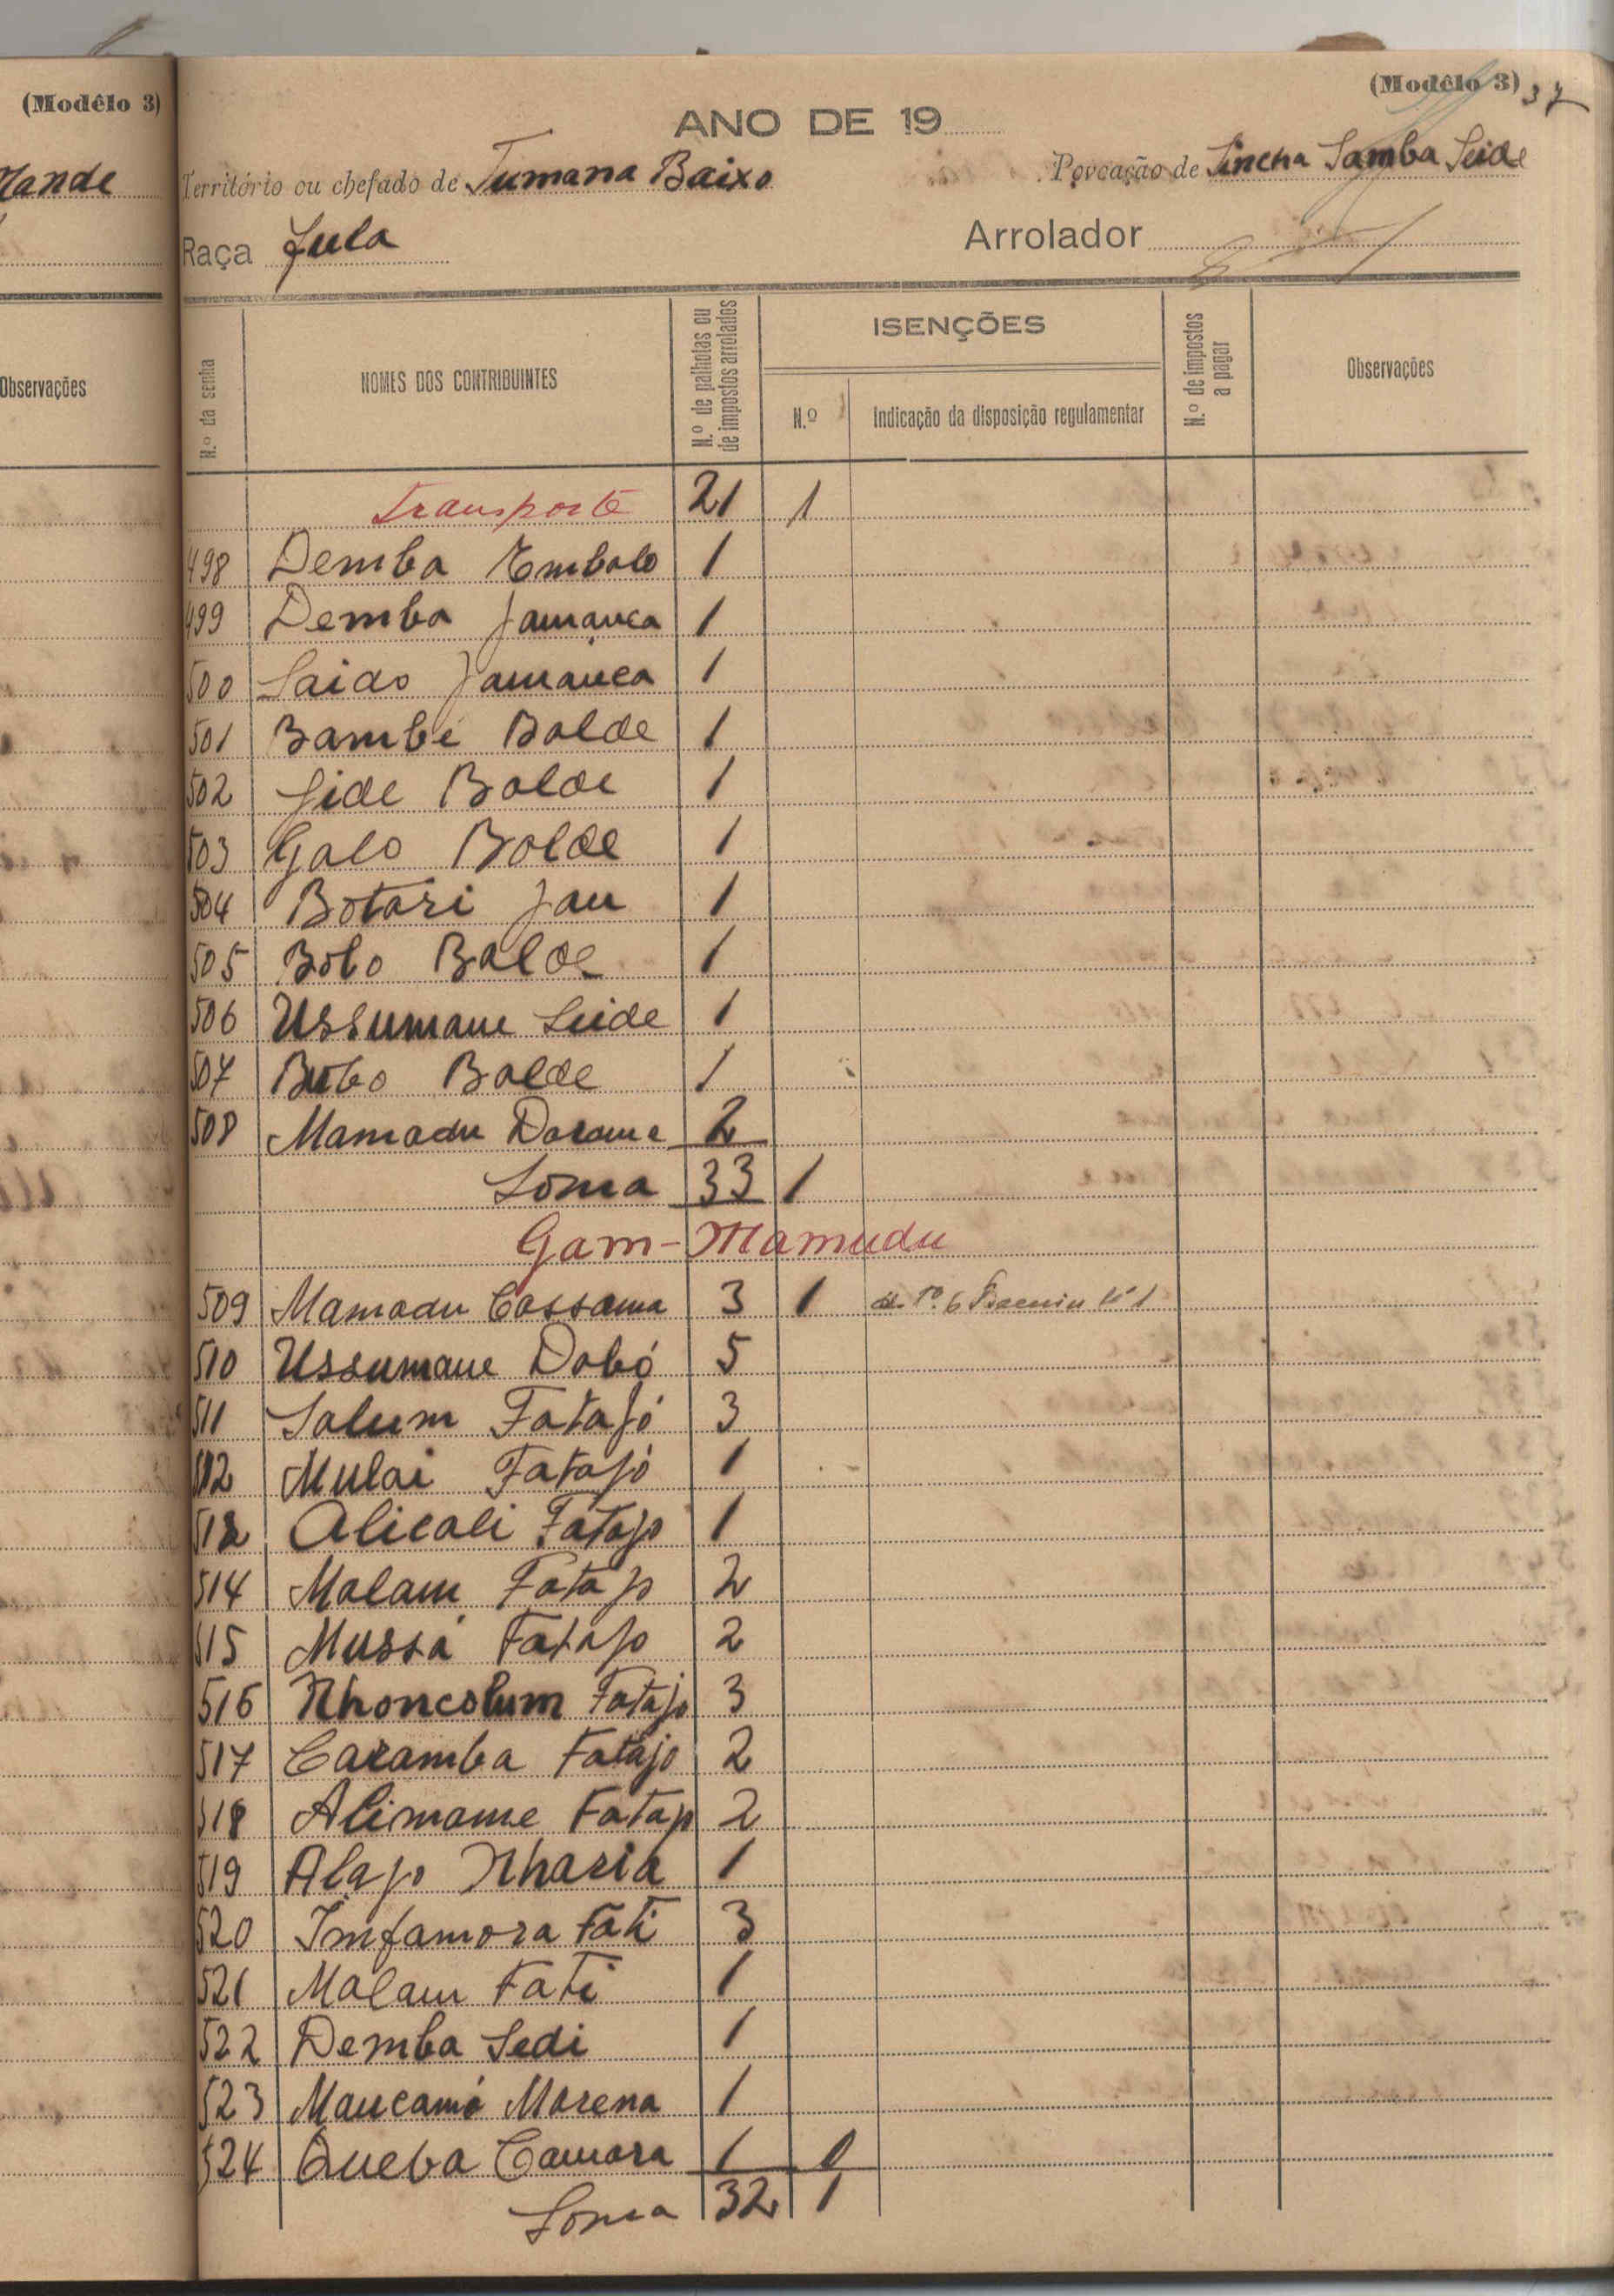 (Modêlo 3)
(Modêlo 3) 37
ANO DE 19
Território ou chefado de Tumana Baixo Povoação de Sincha Samba Seide
Raça Fula Arrolador
Observações
N.º da senha
NOMES DOS CONTRIBUINTES
N.º de palhotas ou de impostos arrolados
ISENÇÕES
N.º
Indicação da disposição regulamentar
N.º de impostos a pagar
Observações
Transporte 21 1
498 Demba Embalo 1
499 Demba Jamanca 1
500 Saido Jamanca 1
501 Bambé Balde 1
502 Jide Balde 1
503 Galo Balde 1
504 Botari Jau 1
505 Bobo Balde 1
506 Ussumane Seide 1
507 Bobo Balde 1
508 Mamadu Darame 2
Soma 33 1
Gam-Mamudu
509 Mamadu Cassama 3 1
510 Ussumane Dabó 5
511 Salum Fatajó 3
512 Mulai Fatajó 1
513 Alicali Fatajo 1
514 Malam Fatajo 2
515 Mussá Fatajo 2
516 Nhoncolum Fatajo 3
517 Caramba Fatajo 2
518 Alimame Fatajo 2
519 Alajo Nharia 1
520 Infamora Fati 3
521 Malam Fati 1
522 Demba Sedi 1
523 Mancamó Marena 1
524 Queba Camara 1 0
Soma 32 1